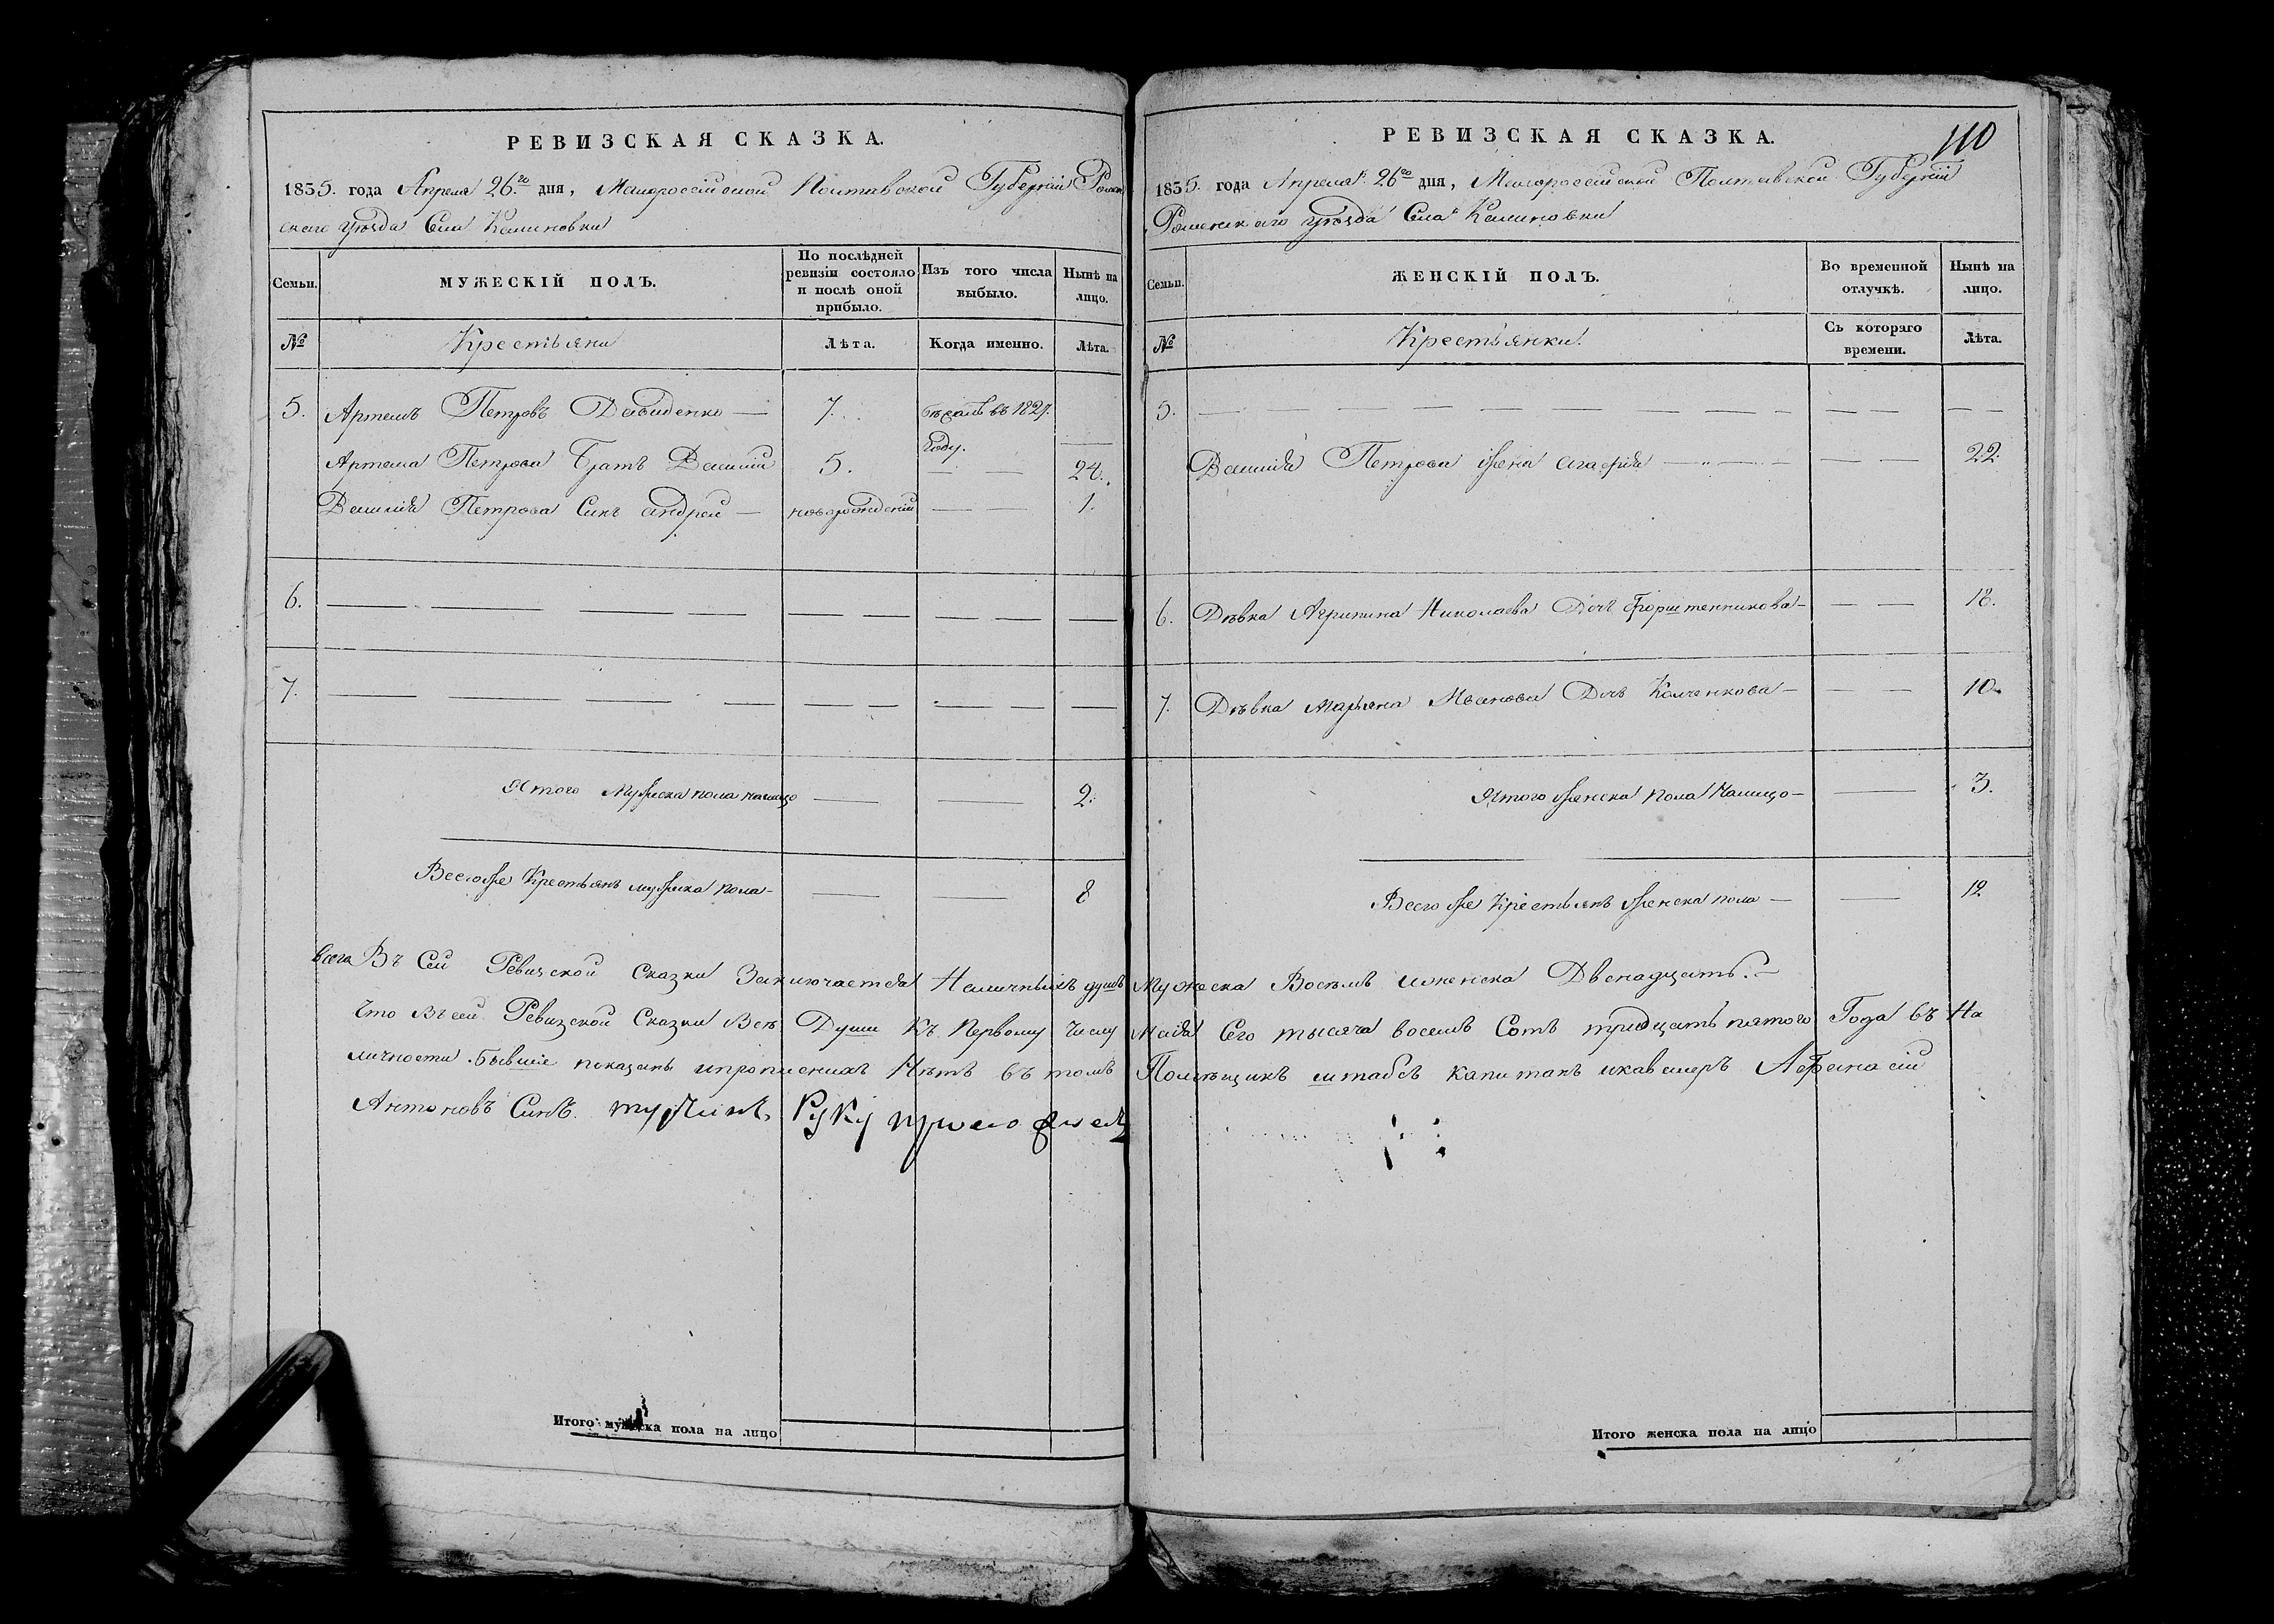 РЕВИЗСКАЯ СКАЗКА.
1835. года Апреля 26.го дня, Малороссійской Полтавской Губерніи Ромен
скаго уѣзда Села Калиновки
Семьи.
МУЖЕСКІЙ ПОЛЪ.
По послѣдней ревизіи состояло и послѣ оной прибыло.
Изъ того числа выбыло.
Нынѣ на лицо.
№
Крестьяни
Лѣта.
Когда именно.
Лѣта.
5. Артемъ Петровъ Давиденко — 7. бѣжалъ въ 1827.
году.
Артема Петрова Братъ Василій 5. — — 24.
Василія Петрова Синъ андрей — новорожденій — — 1.
6.
7.
Итого Мужеска пола налицо — — 2.
Всегоже Крестьянъ мужска пола — — — 8
РЕВИЗСКАЯ СКАЗКА.
110
1835. года Апреля 26го дня, Малороссійской Полтавской Губерніи
Роменскаго уѣзда Села Калиновки
Семьи.
ЖЕНСКІЙ ПОЛЪ.
Во временной отлучкѣ.
Нынѣ на лицо.
№
Крестьянки.
Съ котораго времени.
Лѣта.
5.
Василія Петрова жена агафія — — — 22.
6. Дѣвка Агрипина Николаева Дочь Форштенникова — — — 18.
7. Дѣвка Марьяна Иванова Дочь Колченкова — — — 10.
Итого женска пола Налицо — — 3.
Всего же Крестьянъ женска пола — — 12
всего Въ Сей Ревизской Сказки Заключается Наличныхъ душъ Мужеска Восемъ иженска Двенадцать. —
Что въ сей Ревизской Сказки Всѣ Души Къ Первому Числу Маія Сего тысяча восемь Сотъ тридцать пятого Года въ На
личности бывшіе показаны ипропиенихъ Нѣтъ въ томъ Помѣщикъ штабсъ капитанъ икавалеръ Афанасій
Антоновъ Синъ. Руку приложилъ
Итого мужеска пола на лицо
Итого женска пола на лицо